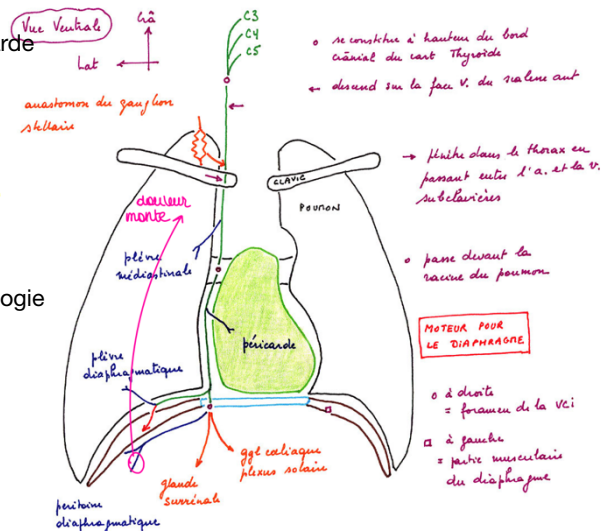 Vue Ventrale
Crâ
Lat
arde
C3
C4
C5
se constitue à hauteur du bord
crânial du cart Thyroïde
descend sur la face V. du scalène ant
anastomon du ganglion
stellaire
pénètre dans le thorax en
passant entre l'a. et la v.
subclavières
CLAVIC
POUMON
douleur
monte
plèvre
médiastinale
passe devant la
racine du poumon
ogie
péricarde
MOTEUR POUR
LE DIAPHRAGME
plèvre
diaphragmatique
à droite
= foramen de la VCi
à gauche
= partie musculaire
du diaphragme
ggl cœliaque
plexus solaire
glande
surrénale
péritoine
diaphragmatique